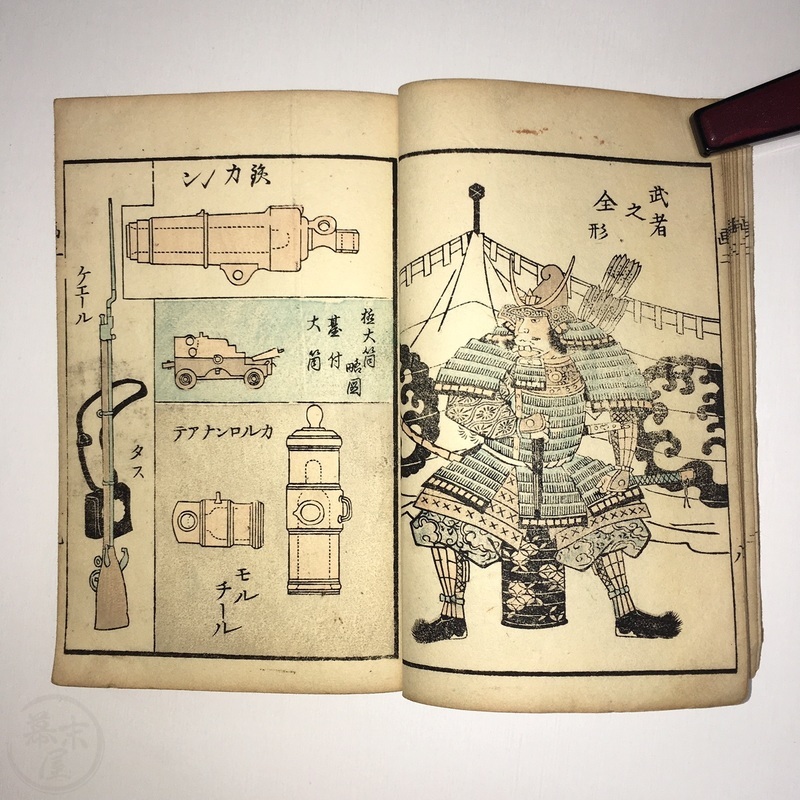 武者
之
全形
カノン
大筒
略圖
臺付
大筒
カルロンナアテ
モル
チール
ケエール
タス
幕末屋